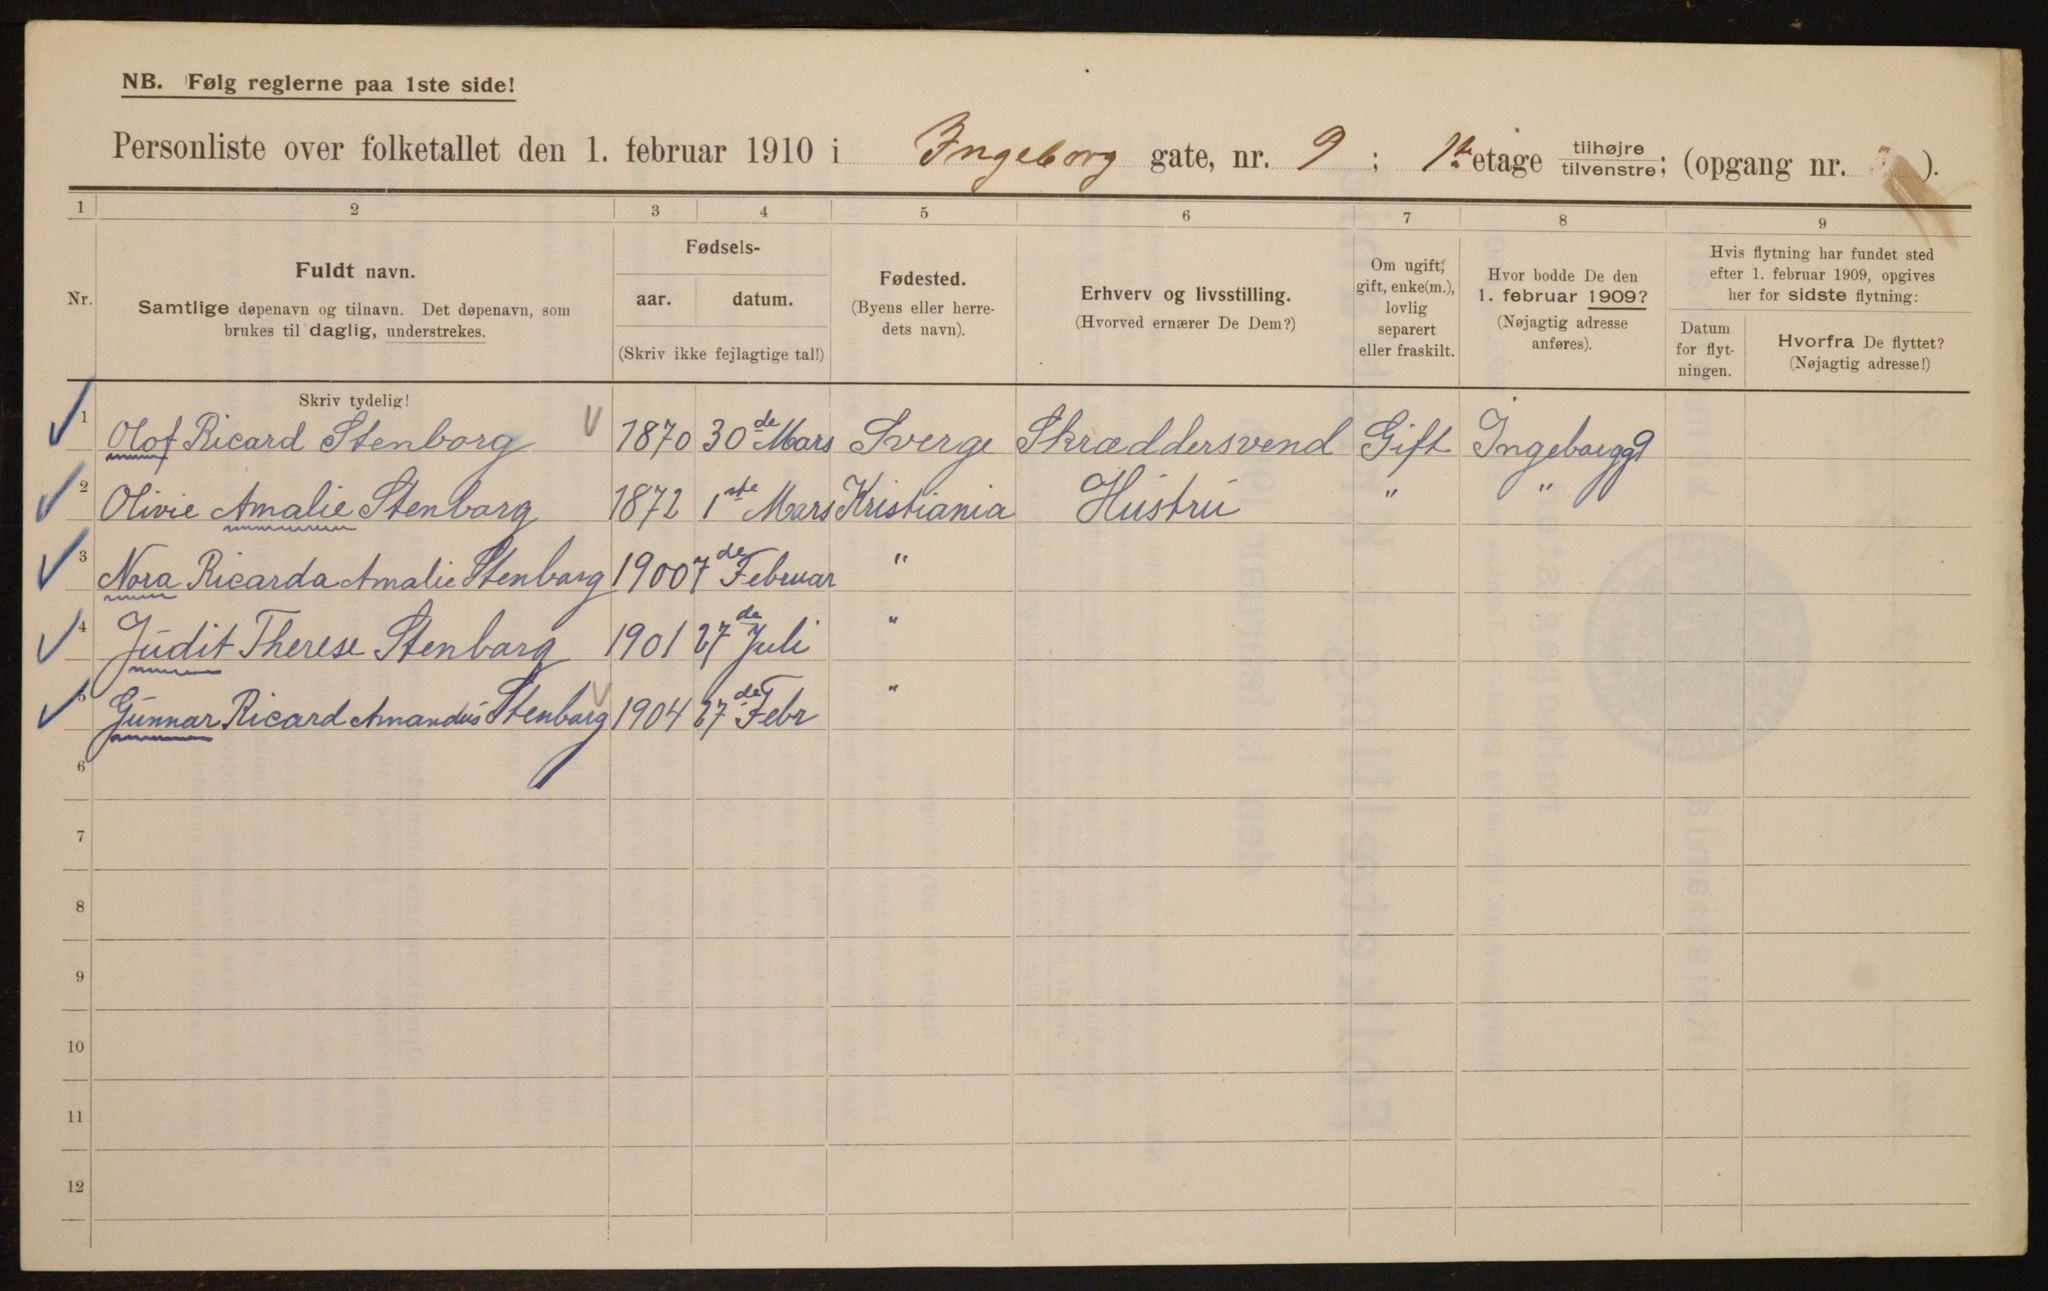 NB. Følg reglerne paa 1ste side!
Personliste over folketallet den 1. februar 1910 i Ingeborg gate, nr. 9 ; 1ste etage tilhøjre/tilvenstre; (opgang nr. ).
1 2 3 4 5 6 7 8 9
Nr.
Fuldt navn.
Samtlige døpenavn og tilnavn. Det døpenavn, som
brukes til daglig, understrekes.
Fødsels-
aar. datum.
(Skriv ikke fejlagtige tal!)
Fødested.
(Byens eller herre-
dets navn).
Erhverv og livsstilling.
(Hvorved ernærer De Dem?)
Om ugift,
gift, enke(m.),
lovlig
separert
eller fraskilt.
Hvor bodde De den
1. februar 1909?
(Nøjagtig adresse
anføres).
Hvis flytning har fundet sted
efter 1. februar 1909, opgives
her for sidste flytning:
Datum
for flyt-
ningen.
Hvorfra De flyttet?
(Nøjagtig adresse!)
Skriv tydelig!
1 Olof Ricard Stenborg 1870 30de Mars Sverge Skræddersvend Gift Ingeborgg 9
2 Olivie Amalie Stenborg 1872 1ste Mars Kristiania Hustru " "
3 Nora Ricarda Amalie Stenborg 1900 7de Februar "
4 Judit Therese Stenborg 1901 27de Juli "
5 Gunnar Ricard Amandus Stenborg 1904 27de Febr "
6
7
8
9
10
11
12